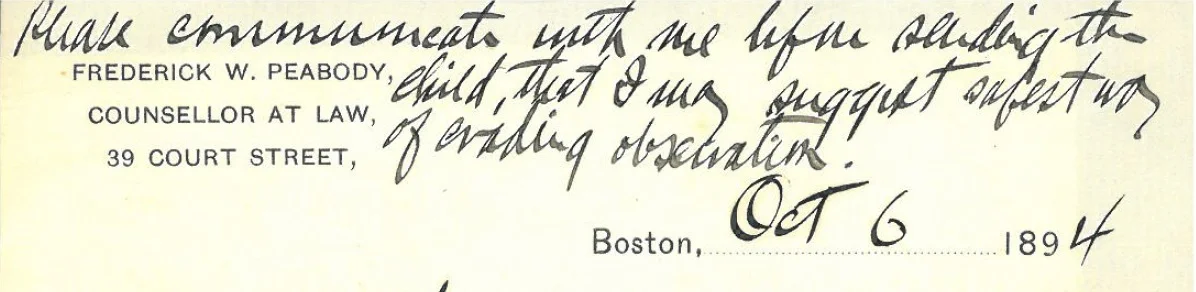 Please communicate with me before sending the
FREDERICK W. PEABODY,
child, that I may suggest safest way
COUNSELLOR AT LAW,
of evading observation.
39 COURT STREET,
Boston, Oct 6 1894